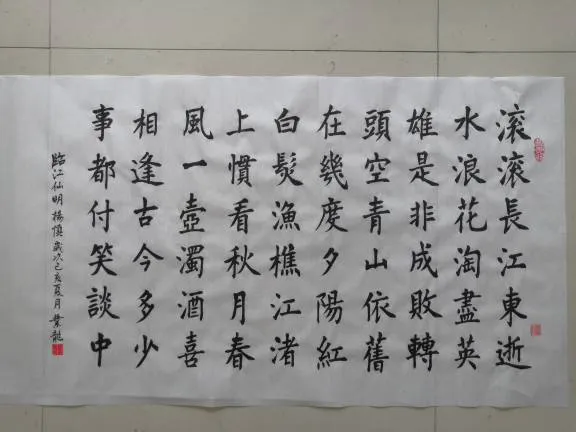 滚滚長江東逝
水浪花淘盡英
雄是非成敗轉
頭空青山依舊
在幾度夕陽紅
白髮漁樵江渚
上慣看秋月春
風一壺濁酒喜
相逢古今多少
事都付笑談中
臨江仙明 楊慎 歲次己亥夏月 龍